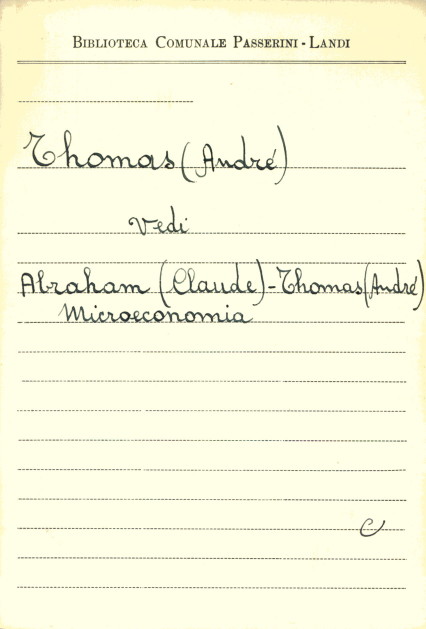 Biblioteca Comunale Passerini - Landi
Thomas (André)
Vedi
Abraham (Claude) - Thomas (André)
Microeconomia
C